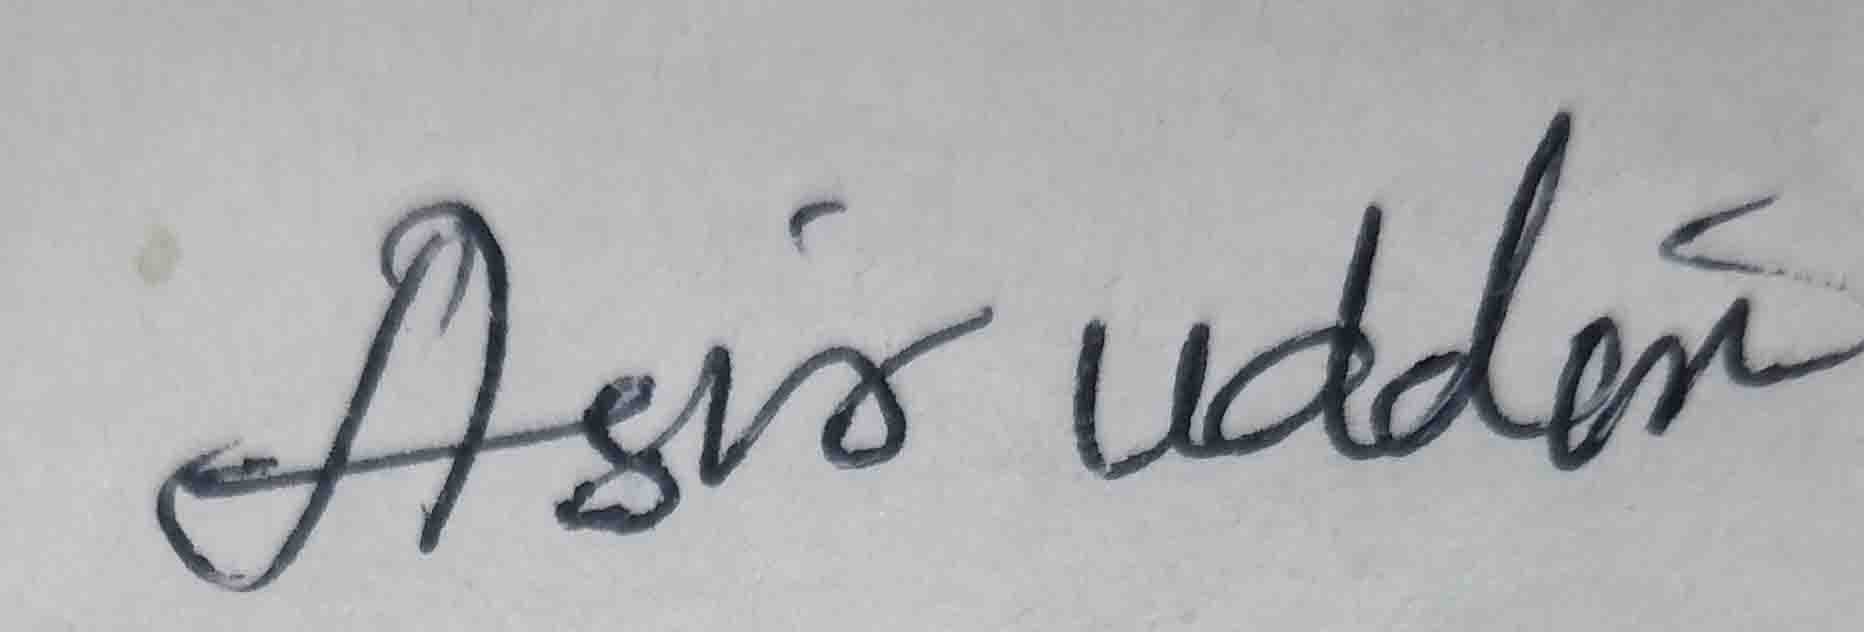 Asir uddin